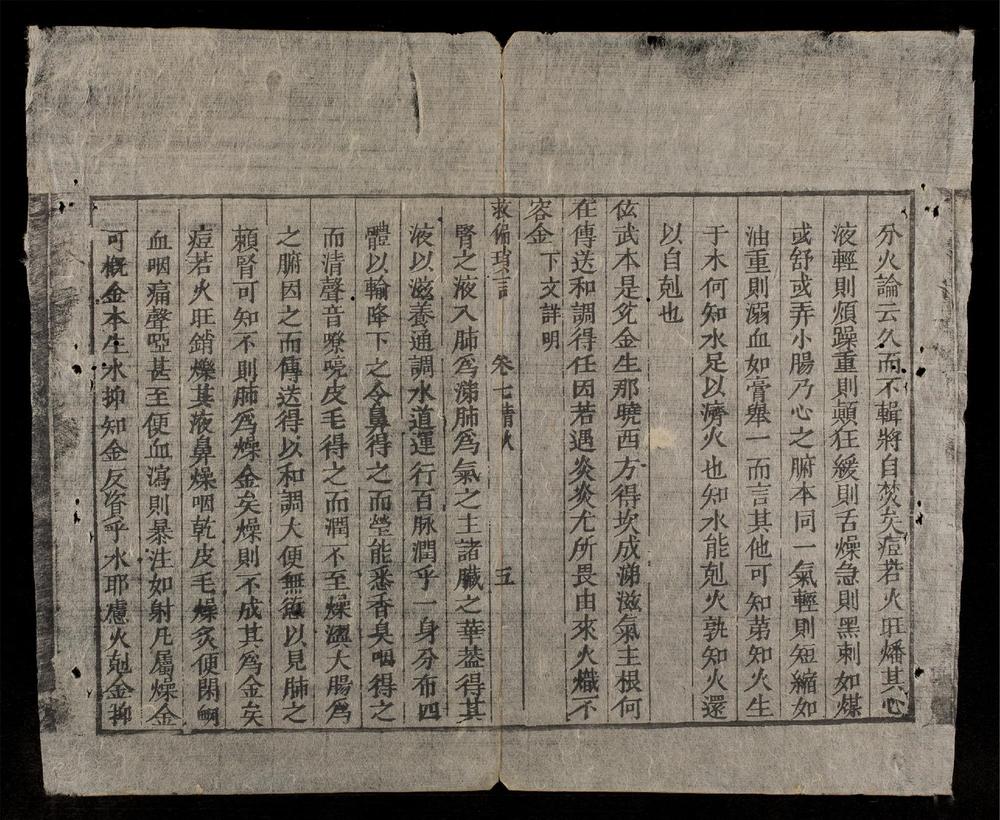 分火論云久而不輯將自焚矣痘若火旺燔其心
液輕則煩躁重則顛狂緩則舌燥急則黑刺如煤
或舒或弄小腸乃心之腑本同一氣輕則短縮如
油重則溺血如膏舉一而言其他可知第知火生
于木何知水足以濟火也知水能剋火孰知火還
以自剋也
伭武本是兊金生那曉西方得坎成涕滋氣主根何
在傳送和調得任因若遇炎炎尤所畏由來火熾不
容金下文詳明
救偏瑣言 卷七情火 五
腎之液入肺爲涕肺爲氣之主諸臟之華葢得其
液以滋養通調水道運行百脉潤乎一身分布四
體以輸降下之令鼻得之而瑩能悉香臭咽得之
而清聲音嘹喨皮毛得之而潤不至燥澀大腸爲
之腑因之而傳送得以和調大便無憊以見肺之
賴腎可知不則肺爲燥金矣燥則不成其爲金矣
痘若火旺銷爍其液鼻燥咽乾皮毛燥灸便閉衂
血咽痛聲啞甚至便血瀉則暴注如射凡屬燥金
可概金本生水抑知金反資乎水耶慮火剋金抑